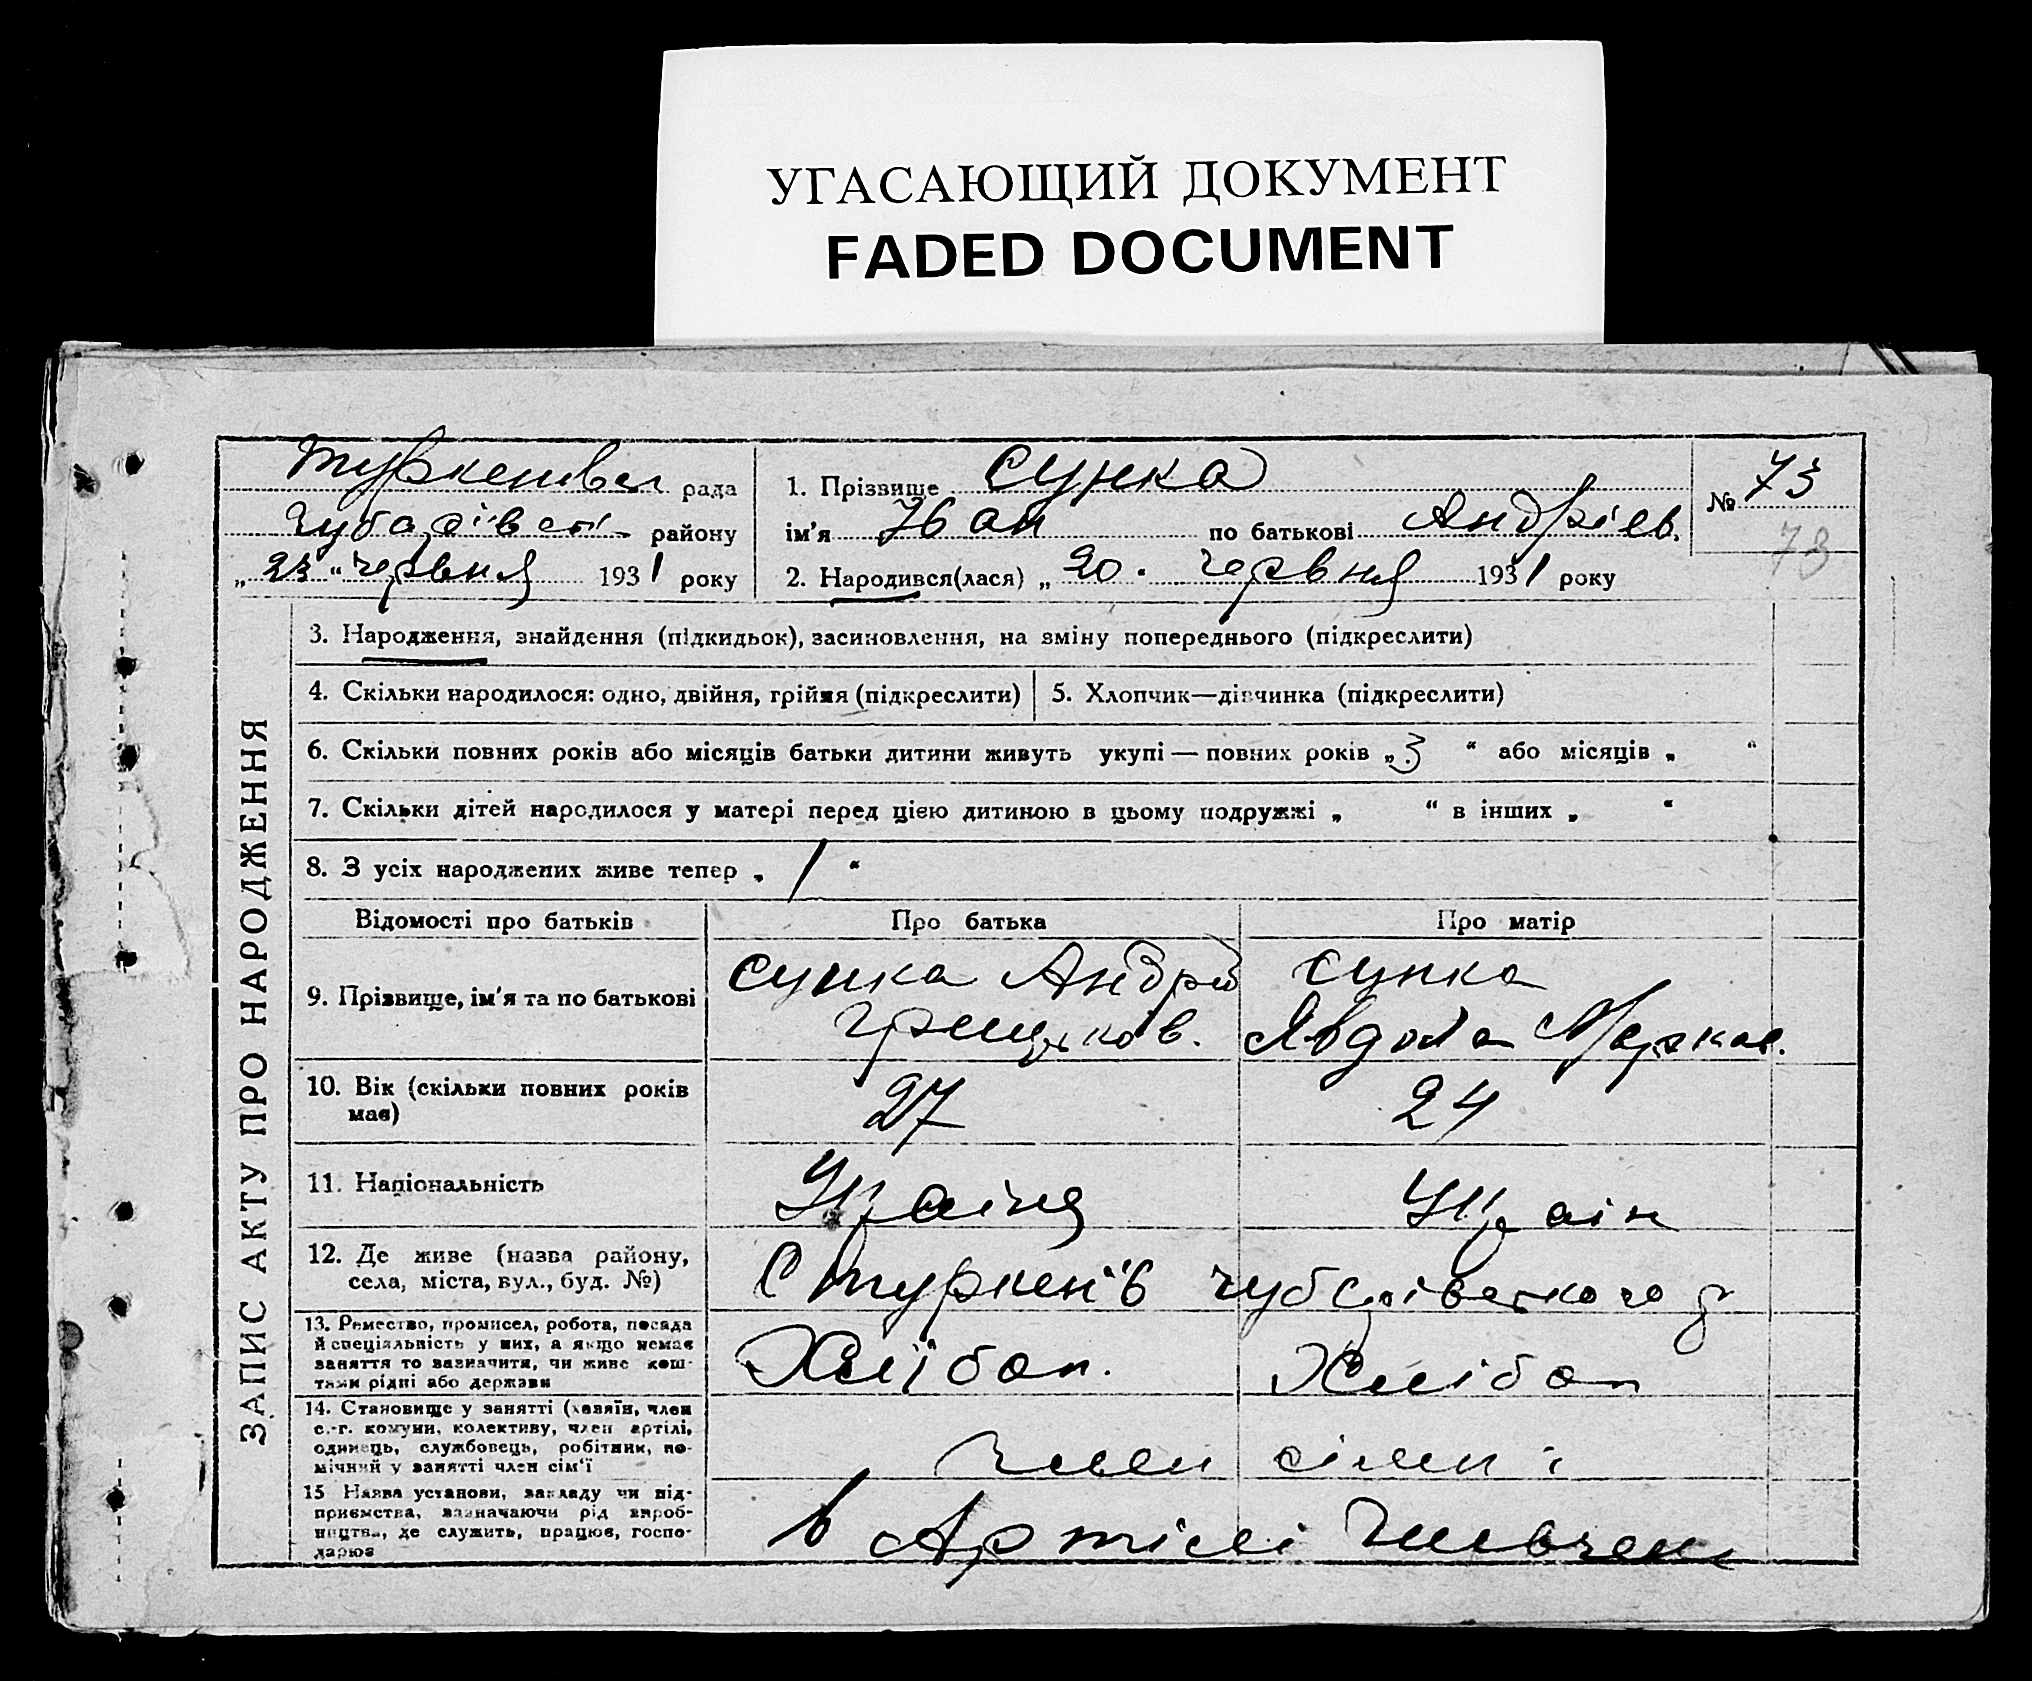 УГАСАЮЩИЙ ДОКУМЕНТ
FADED DOCUMENT
ЗАПИС АКТУ ПРО НАРОДЖЕННЯ
Туркенівсь рада
Чубарівськ району
„ 23 " червня 1931 року
1. Прізвище Супка
ім'я Іван по батькові Андріев.
2. Народився(лася) „ 20 . червня 1931 року
№ 73
73
3. Народження, знайдення (підкидьок), засиновлення, на зміну попереднього (підкреслити)
4. Скільки народилося: одно, двійня, трійня (підкреслити)
5. Хлопчик—дівчинка (підкреслити)
6. Скільки повних років або місяців батьки дитини живуть укупі — повних років „ 3 “ або місяців „ “
7. Скільки дітей народилося у матері перед цією дитиною в цьому подружжі „ “ в інших „ “
8. З усіх народжених живе тепер „ 1 “
Відомості про батьків
Про батька
Про матір
9. Прізвище, ім'я та по батькові
Супка Андрій
Грицьков.
Супка
Явдоха Марков.
10. Вік (скільки повних років
має)
27
24
11. Національність
Україн
Україн
12. Де живе (назва району,
села, міста, вул., буд. №)
С Туркенів Чубарівського р
13. Ремество, промисел, робота, посада
й спеціяльність у них, а якщо немає
заняття то зазначити, чи живе кош-
тами рідні або держави
Хлібоп.
Хлібоп
14. Становище у занятті (хазяїн, член
с.-г. комуни, колективу, член артілі,
одинець, службовець, робітник, по-
мічний у занятті член сім'ї
член сімї
15 Назва установи, закладу чи під-
приємства, зазначаючи рід вироб-
ництва, де служить, працює, госпо-
дарює
в Артілі